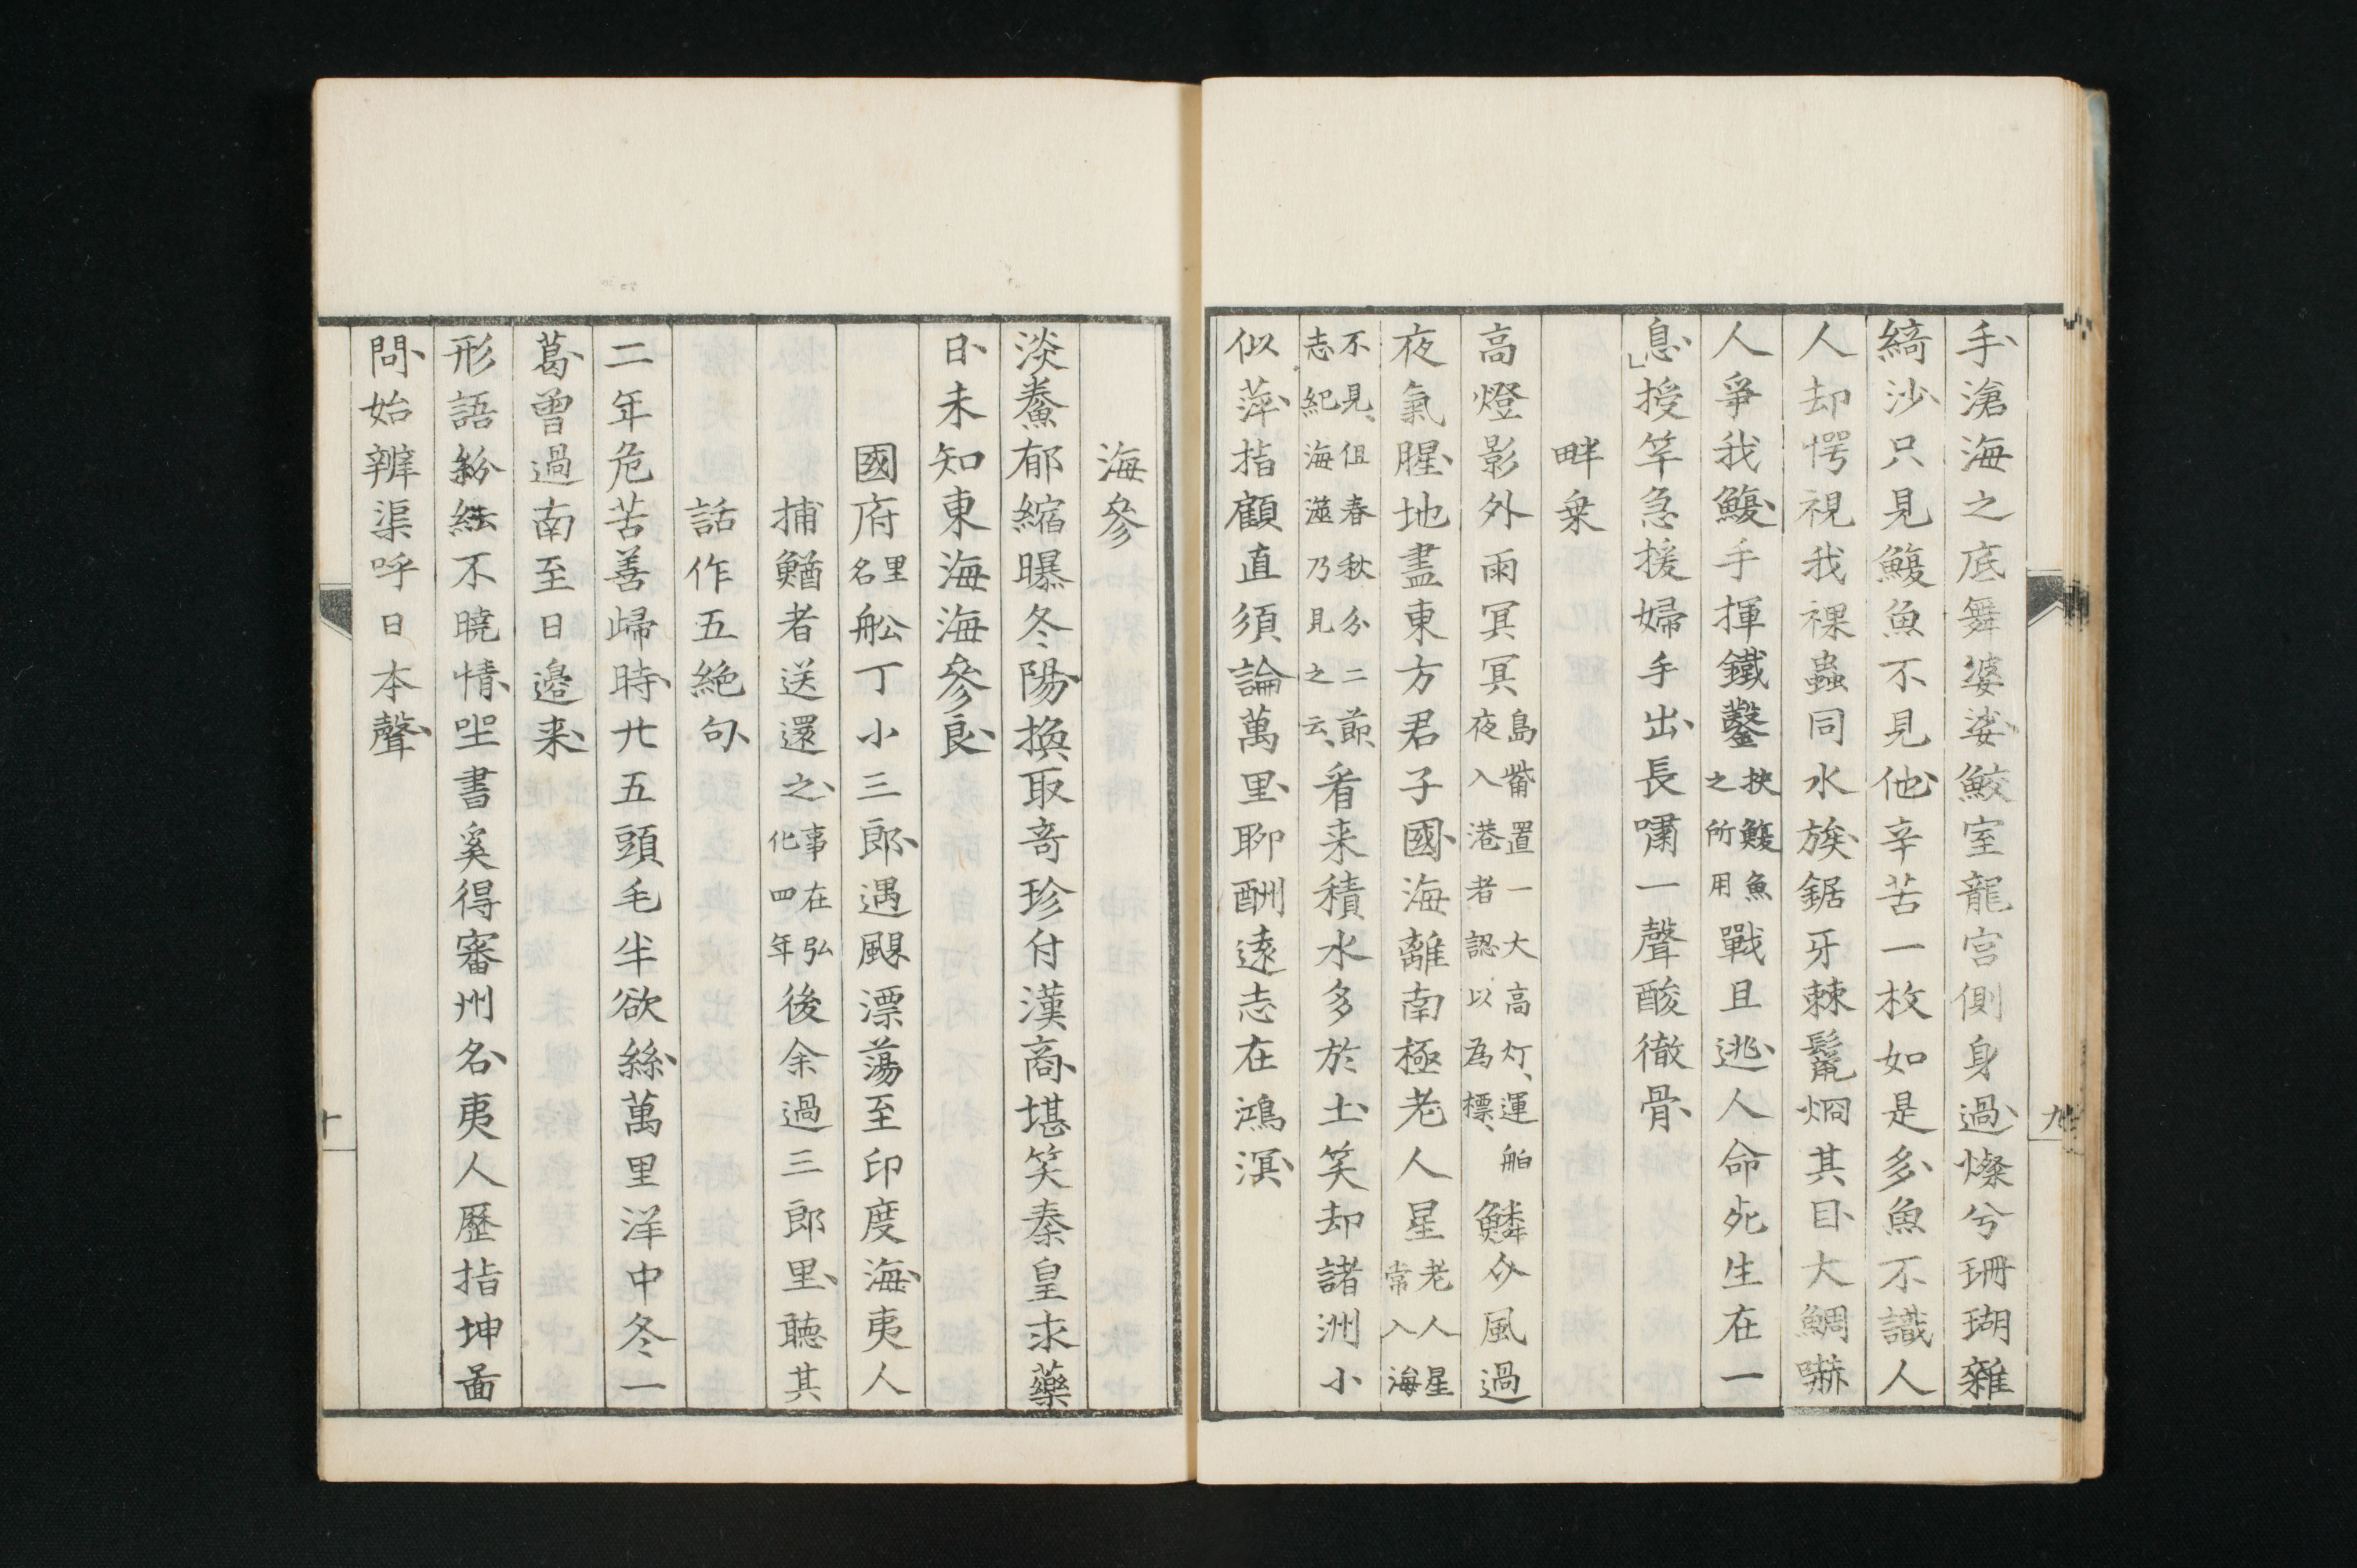 手滄海之底舞婆娑鮫室龍宮側身過燦兮珊瑚雜
綺沙只見鰒魚不見他辛苦一枚如是多魚不識人
人却愕視我裸蟲同水族鋸牙棘鬣烱其目大鯛嚇
人爭我鰒手揮鐵鑿挾鰒魚之所用戰且逃人命死生在一
息授竿急援婦手出長嘯一聲酸徹骨
畔乗
高燈影外雨冥冥島觜置一大高灯運舶夜入港者認以為標鱗分風過
夜氣腥地盡東方君子國海離南極老人星老人星常入海
不見但春秋分二節志紀海遊乃見之云看来積水多於土笑却諸洲小
似萍指顧直須論萬里聊酬遠志在鴻溟
九
海參
淡鮝郁縮曝冬陽換取竒珍付漢商堪笑秦皇求藥
日未知東海海參良
國府里名舩丁小三郎遇颶漂蕩至印度海夷人
捕鰌者送還之事在弘化四年後余過三郎里聽其
話作五絶句
二年危苦善歸時廿五頭毛半欲絲萬里洋中冬一
葛曾過南至日邉来
形語紛紜不曉情呭書奚得審州名夷人歷指坤啚
問始辨渠呼日本聲
十